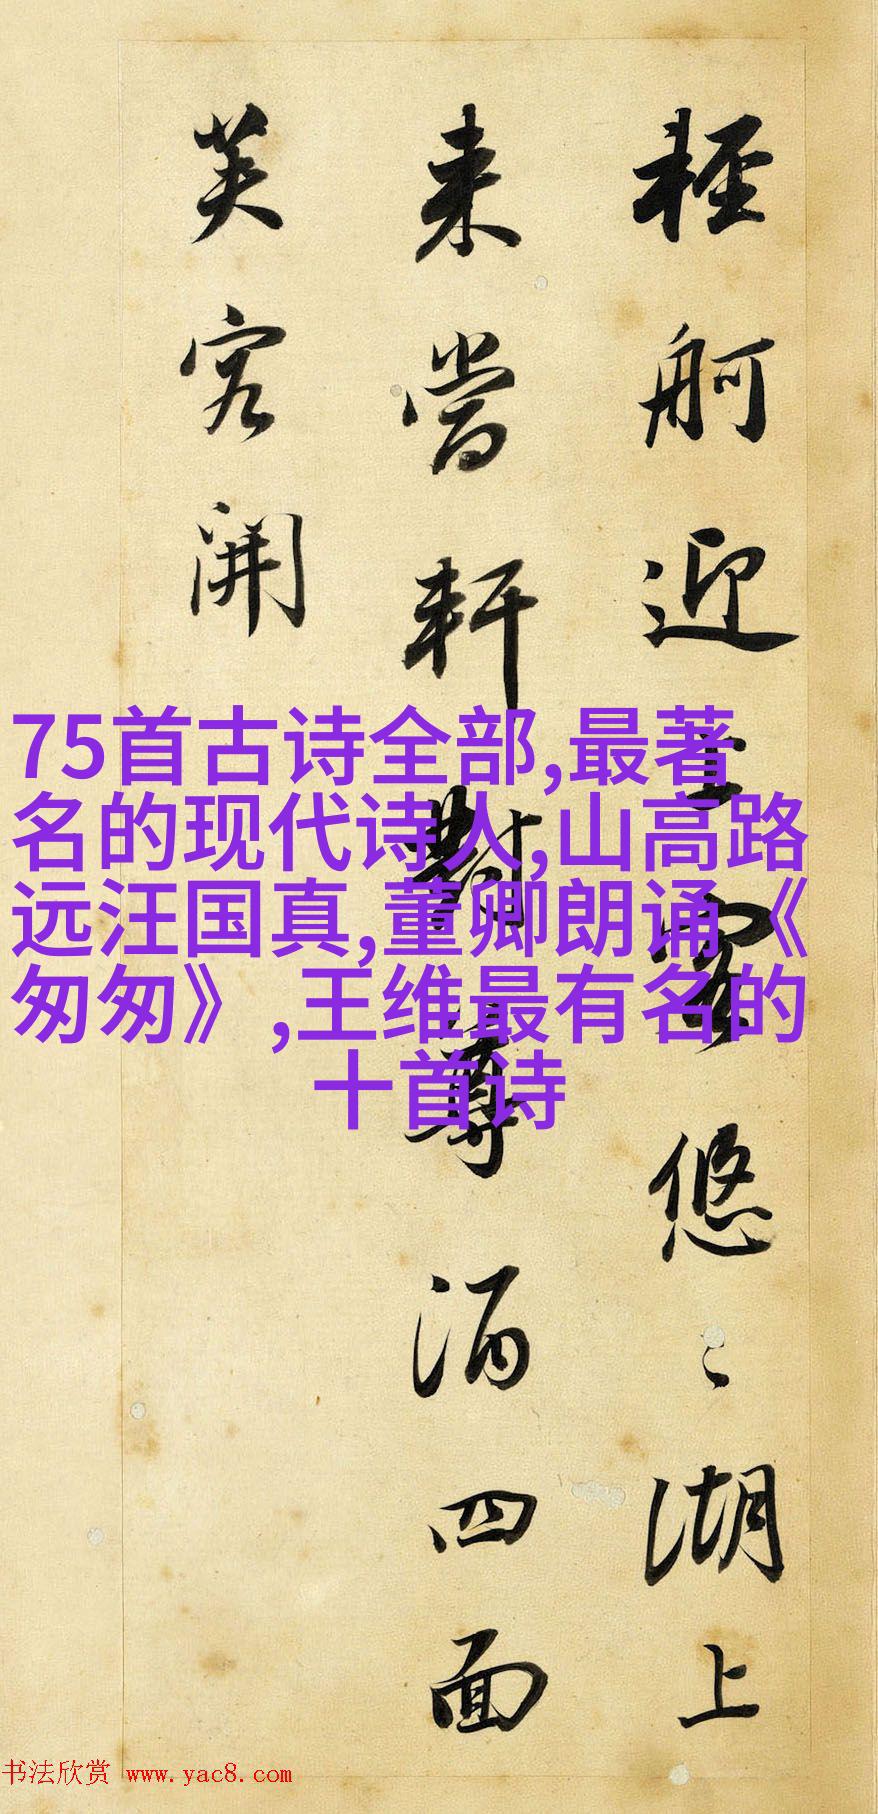 輕舸迎上客悠〻湖上
来當軒對尊酒四面
芙容開
75首古诗全部,最著
名的现代诗人,山高路
远汪国真,董卿朗诵《
匆匆》,王维最有名的
十首诗
书法欣赏 www.yac8.com